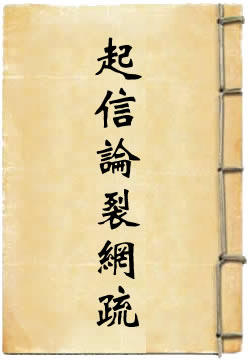 起信論裂網疏